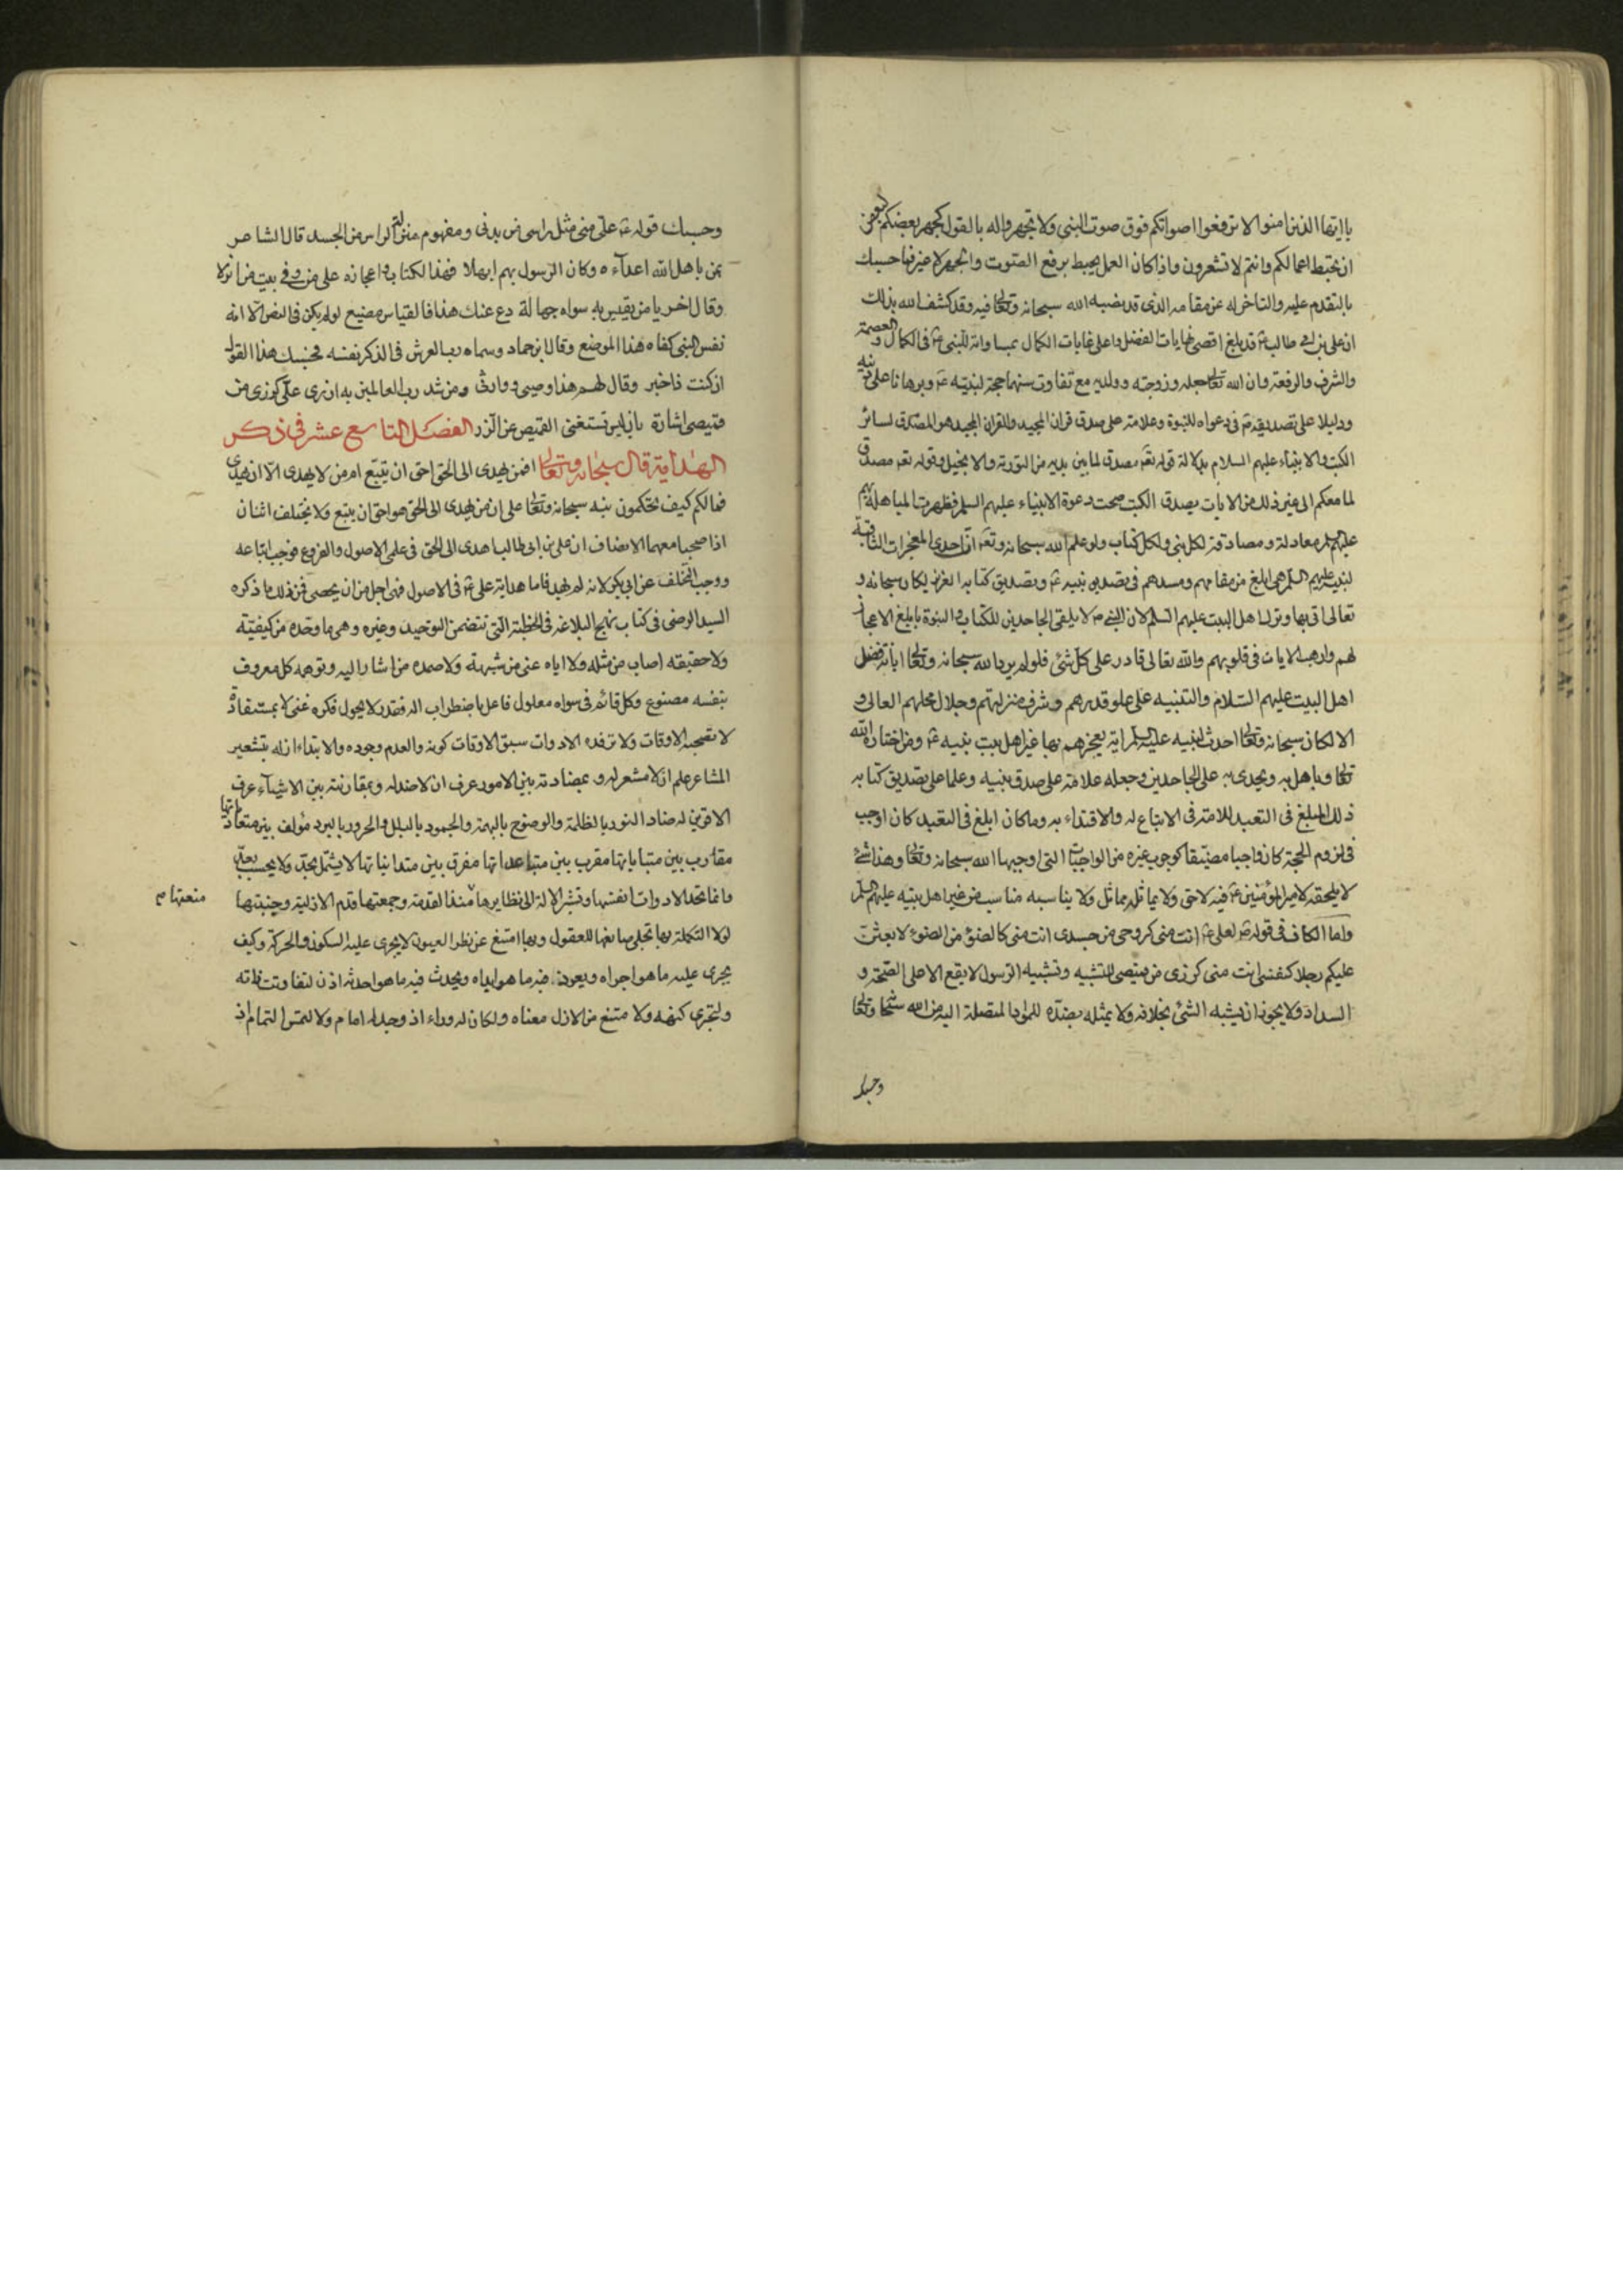 يا ايها الذين امنوا لا ترفعوا اصواتكم فوق صوت النبي ولا تجهروا له بالقول كجهر بعضكم لبعض
ان تحبط اعمالكم وانتم لا تشعرون واذا كان العمل يحبط برفع الصوت والجهر لا غير فما حسبك
بالتقدم عليه والتاخر له عن مقامه الذى قد نصبه الله سبحانه وتعالى فيه وقد كشف الله بذلك
ان على بن ابى طالب ع قد بلغ اقصى نهايات الفضل واعلى غايات الكمال بمساواته للنبى ع فى الكمال والعصمة
والشرف والرفعة وان الله تعالى جعله وزوجته وولديه مع تفاوت سنهما حجة لنبيه ع وبرهانا على نبوته
ودليلا على تصديقه ع فى دعواه للنبوة وعلامة على صدق قران المجيد والقران المجيد هو المصدق لسائر
الكتب والانبياء عليهم السلام بدلالة قوله تعا مصدق لما بين يديه من التورية والانجيل وقوله تعا مصدق
لما معكم الى غير ذلك من الايات بصدق الكتب صحت دعوة الانبياء عليهم السلم فظهرت المباهلة بهم
عليهم السلم معادلة ومصادقة لكل نبى ولكل كتاب ولو علم الله سبحانه وتعا ان احدى المعجزات الثاقبة
لنبيه عليهم السلم هى ابلغ من مقامهم ومسدهم فى تصديق نبيه ع وتصديق كتابه العزيز لكان سبحانه و
تعالى اتى بها وترك اهل البيت عليهم السلم لان النبى ص لا يلقى الجاحدين للكتاب والنبوة بابلغ الاعجاز
لهم وارهب الايات فى قلوبهم والله تعالى قادر على كل شئ فلو لم يرد الله سبحانه وتعالى ابانة فضل
اهل البيت عليهم السلام والتنبيه على علو قدرهم وشرف منزلتهم وجلال محلهم العالى و
الا لكان سبحانه وتعالى احدث لنبيه عليه السلم اية يعجزهم بها غير اهل بيت نبيه ع ومن اختاره الله
تعالى وباهل به وتحدى به على الجاحدين وجعله علامة على صدق نبيه وعلما على تصديق كتابه
ذلك ابلغ فى التعبد للامة فى الاتباع له والاقتداء به وما كان ابلغ فى التعبد كان اوجب
فى لزوم الحجة كان واجبا مضيقا كوجوب غيره من الواجبات التى اوجبها الله سبحانه وتعالى وهذا شئ
لا يلحقه لامير المؤمنين ع فيه لاحق ولا يماثله مماثل ولا يناسبه مناسب من غير اهل بيته عليهم السلم
واما الكاف فى قوله ع لعلى ع انت منى كروحى من جسدى انت منى كالضوء من الضوء لابعثن
عليكم رجلا كنفسى انت منى كزرى من قميصى للتشبيه وتشبيه الرسول لا يقع الا على الصحة و
السداد ولا يجوز ان يشبه الشئ بخلافه ولا يمثله بضده للمواد المتصلة اليه من الله سبحا وتعالى
وحسبك
وحسبك قوله ع على منى مثل راسى من بدنى ومفهوم منزلة الراس من الجسد قال الشاعر
بمن باهل الله اعداءه وكان الرسول بهم ابهلا فهذا الكتاب واعجازه على من وفى بيت من انزلا
وقال اخر يا من يقيس به سواه جهالة دع عنك هذا فالقياس مضيع لو لم يكن فى النص الا انه
نفس النبى كفاه هذا الموضع وقال ابن حماد وسماه رب العرش فى الذكر نفسه فحسبك هذا القول
ان كنت ذا خبر وقال لهم هذا وصيى ووارث ومن شد رب العالمين به ازرى على كزرى من
قميصى اشارة بان ليس تستغنى القميص عن الزر الفصل التاسع عشر فى ذكر
الهداية قال سبحانه وتعالى افمن يهدى الى الحق احق ان يتبع امن لا يهدى الا ان يهدى
فما لكم كيف تحكمون نبه سبحانه وتعالى على ان من يهدى الى الحق هو احق ان يتبع ولا يختلف اثنان
اذا صحبا معهما الانصاف ان على بن ابى طالب اهدى الى الحق فى علمى الاصول والفروع فوجب اتباعه
ووجب التخلف عن ابى بكر لانه لم يهد فاما هداية على ع فى الاصول فهى اجل من ان يحصى فمن ذلك ما ذكره
السيد الرضى فى كتاب نهج البلاغه فى الخطبة التى تتضمن التوحيد وغيره وهى ما وحده من كيفيته
ولا حقيقته اصاب من مثله ولا اياه عنى من شبهه ولا صمده من اشار اليه وتوهمه كل معروف
بنفسه مصنوع وكل قائم فى سواه معلول فاعل باضطراب اله فقدر لا يجول فكره غنى لا بمستفادة
لا تصحبه الاوقات ولا ترفده الادوات سبق الاوقات كونه والعدم وجوده والابتداء ازله بتشعير
المشاعر علم ان لا مشعر له وبمضادته بين الامور عرف ان لا ضد له وبمقارنته بين الاشيآء عرف
ان لا قرين له ضاد النور بالظلمة والوضوح بالبهمة والجمود بالبلل والحرور بالبرد مؤلف بين متعادياتها
مقارب بين متبايناتها مقرب بين متباعداتها مفرق بين متدانياتها لا يشتمل بحد ولا يحسب بعد
وانما تحد الادوات انفسها وتشير الالة الى نظايرها منذ القدمة وجمعتها قدم الازلية وجنبتها
منعتها م
لولا التكملة بها تجلى صانعها للعقول وبها امتنع عن نظر العيون لا يجرى عليه السكون والحركة وكيف
يجرى عليه ما هو اجراه ويعود فيه ما هو ابداه ويحدث فيه ما هو احدثه اذن لتفاوتت ذاته
ولتجزى كنهه ولا متنع من الازل معناه ولكان له وراء اذ وجد له امام ولالتمس التمام اذ